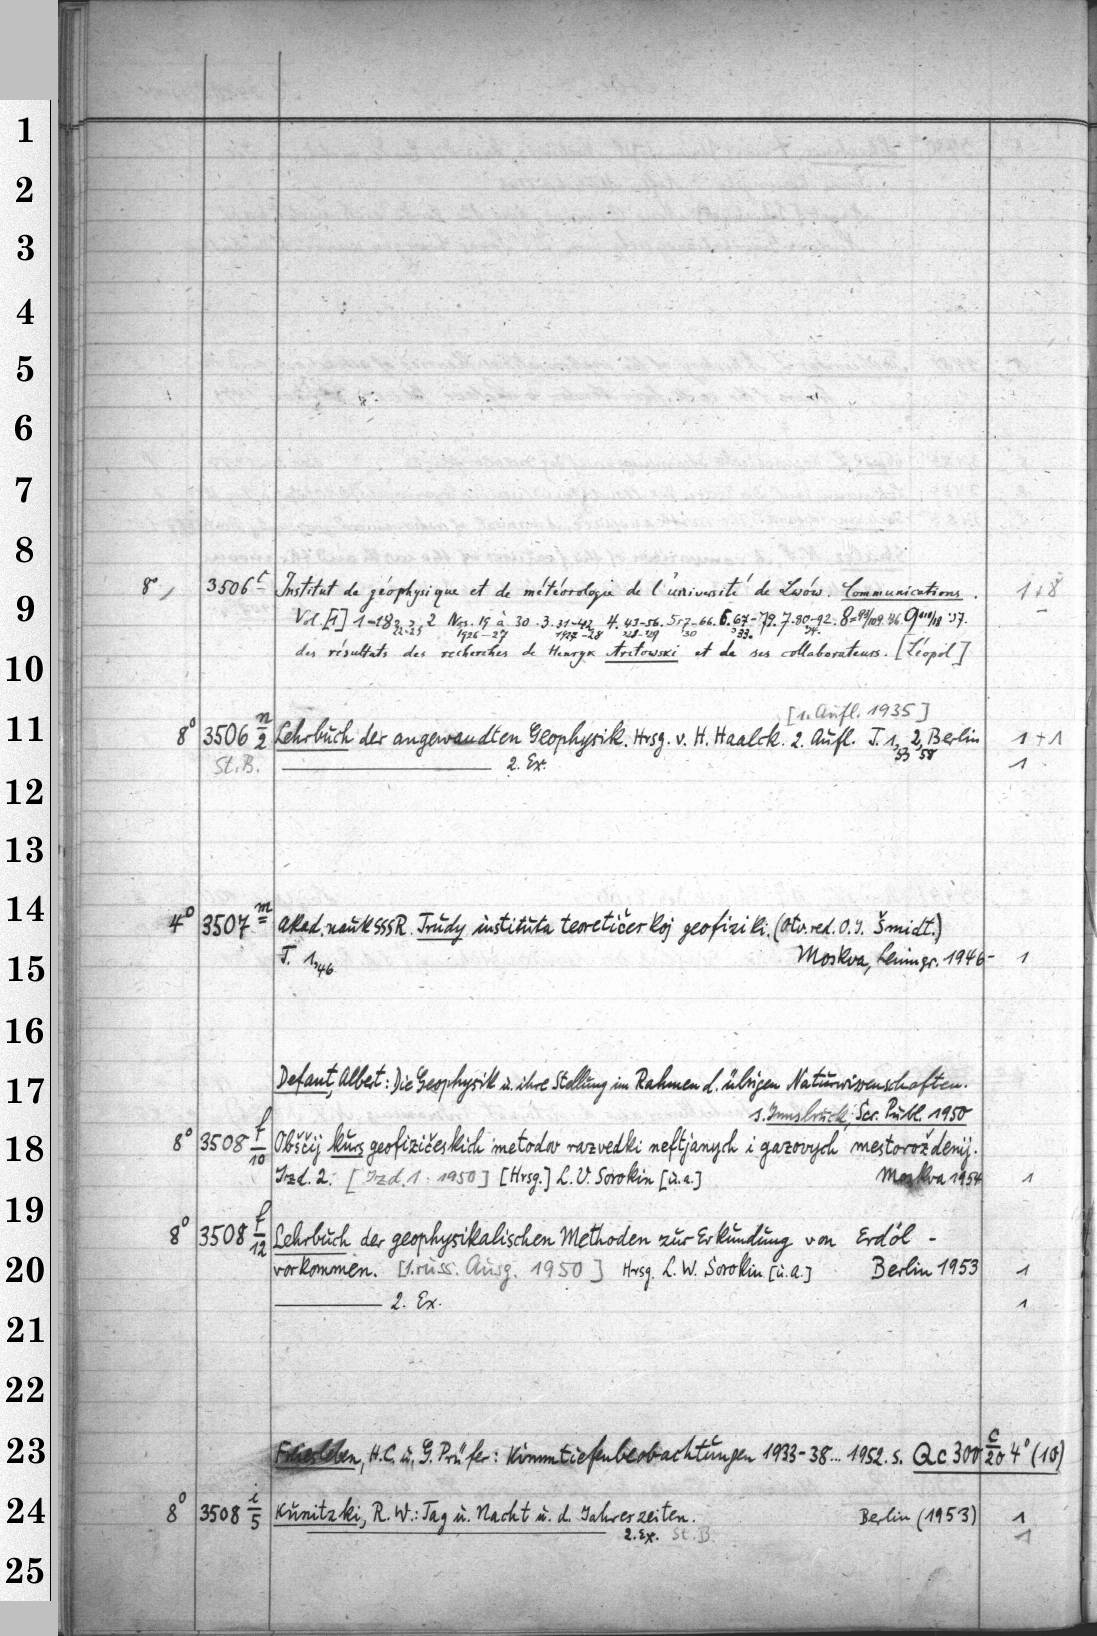 1
2
3
4
5
6
7
8
8°, 3506 t Institut de géophysique et de météorologie de l'université de Lwów. Communications. 1+8
9
Vol. [1] 1-18 2 Nos. 15 à 30. 3. 31-42 4. 43-56. 5. 57-66. 6. 67-79. 7. 80-92. 8
des résultats des recherches de Henryk Arctowski et de ses collaborateurs. [Léopol]
10
[1. Aufl. 1935]
11
8° 3506 n/2 Lehrbuch der angewandten Geophysik. Hrsg. v. H. Haalck. 2. Aufl. T. 1,53 2,58 Berlin 1+1
St.B. 2. Ex. 1
12
13
14
4° 3507 m Akad. nauk SSSR. Trudy instituta teoretičeskoj geofiziki. (Otv. red. O. J. Šmidt.)
15
T. 1,46 Moskva, Leningr. 1946- 1
16
17
Defant, Albert: Die Geophysik u. ihre Stellung im Rahmen d. übrigen Naturwissenschaften.
s. Innsbruck, Scr. Publ. 1950
18
8° 3508 f/10 Obščij kurs geofizičeskich metodov razvedki neftjanych i gazovych mestoroždenij.
Izd. 2. [Izd. 1. 1950] [Hrsg.] L. V. Sorokin [u.a.] Moskva 1954 1
19
8° 3508 f/12 Lehrbuch der geophysikalischen Methoden zur Erkundung von Erdöl-
20
vorkommen. [1. russ. Ausg. 1950] Hrsg. L. W. Sorokin [u.a.] Berlin 1953 1
2. Ex. 1
21
22
23
Friesleben, H.C. u. G. Prüfer: Kimmtiefenbeobachtungen 1933-38... 1952. s. Qc 300 c/20 4° (10)
24
8° 3508 i/5 Kunitzki, R. W.: Tag u. Nacht u. d. Jahreszeiten. Berlin (1953) 1
2. Ex. St.B. 1
25